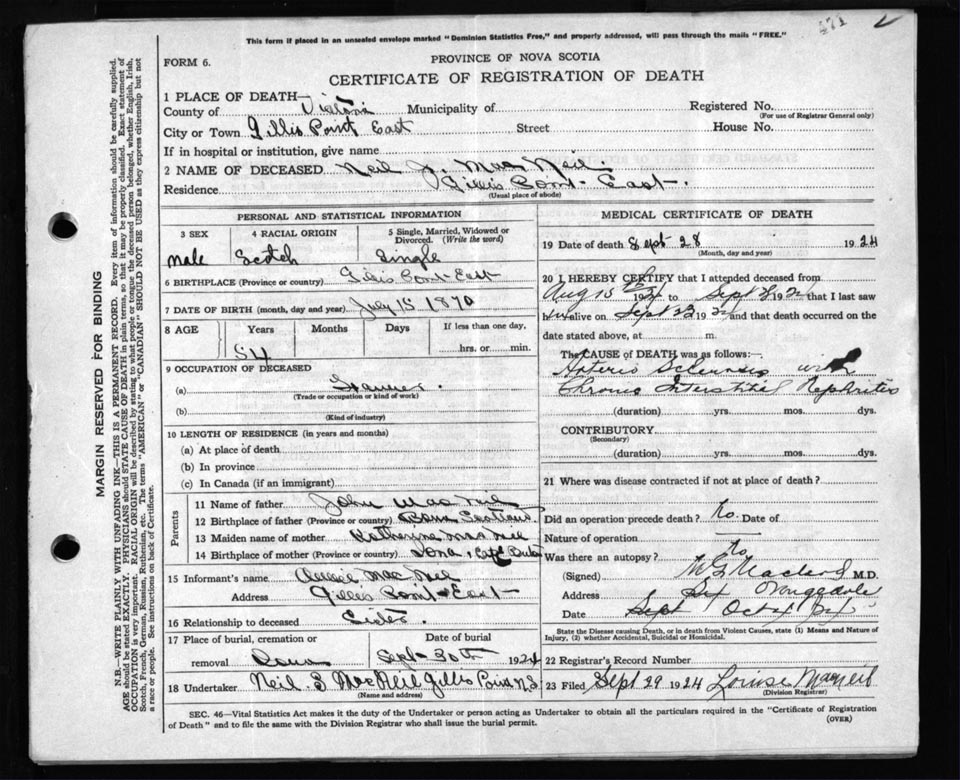 471
This form if placed in an unsealed envelope marked "Dominion Statistics Free," and properly addressed, will pass through the mails "FREE."
FORM 6.
PROVINCE OF NOVA SCOTIA
CERTIFICATE OF REGISTRATION OF DEATH
1 PLACE OF DEATH—
County of Victoria Municipality of Registered No.
(For use of Registrar General only)
City or Town Gillis Point East Street House No.
If in hospital or institution, give name
2 NAME OF DECEASED Neil J. MacNeil
Residence Gillis Point East.
(Usual place of abode)
PERSONAL AND STATISTICAL INFORMATION
3 SEX 4 RACIAL ORIGIN 5 Single, Married, Widowed or Divorced. (Write the word)
Male Scotch Single
6 BIRTHPLACE (Province or country) Gillis Point East
7 DATE OF BIRTH (month, day and year) July 15 1870
8 AGE Years Months Days If less than one day,
54 hrs. or min.
9 OCCUPATION OF DECEASED
(a)
(Trade or occupation or kind of work)
(b)
(Kind of industry)
10 LENGTH OF RESIDENCE (in years and months)
(a) At place of death
(b) In province
(c) In Canada (if an immigrant)
Parents
11 Name of father John MacNeil
12 Birthplace of father (Province or country) Born Scotland
13 Maiden name of mother Katherine MacNeil
14 Birthplace of mother (Province or country) Iona, Cape Breton
15 Informant's name MacNeil
Address Gillis Point East
16 Relationship to deceased Sister
17 Place of burial, cremation or removal Iona
Date of burial Sept 30th 1924
18 Undertaker Neil S MacNeil Gillis Point N.S
(Name and address)
MEDICAL CERTIFICATE OF DEATH
19 Date of death Sept 28 1924
(Month, day and year)
20 I HEREBY CERTIFY that I attended deceased from
Aug 15th 1924 to Sept 23 1924 that I last saw
him alive on Sept 23 1924 and that death occurred on the
date stated above, at m.
The CAUSE OF DEATH was as follows:—
Arterio Sclerosis with
Chronic Interstitial Nephritis
(duration) yrs. mos. dys.
CONTRIBUTORY
(Secondary)
(duration) yrs. mos. dys.
21 Where was disease contracted if not at place of death?
Did an operation precede death? No. Date of
Nature of operation
Was there an autopsy? No
(Signed) MacLeod M.D.
Address Orangedale
Date Oct
State the Disease causing Death, or in death from Violent Causes, state (1) Means and Nature of
Injury, (2) whether Accidental, Suicidal or Homicidal.
22 Registrar's Record Number
23 Filed Sept 29 1924 Louise MacNeil
(Division Registrar)
SEC. 46—Vital Statistics Act makes it the duty of the Undertaker or person acting as Undertaker to obtain all the particulars required in the "Certificate of Registration
of Death" and to file the same with the Division Registrar who shall issue the burial permit.
(OVER)
MARGIN RESERVED FOR BINDING
N.B.—WRITE PLAINLY WITH UNFADING INK—THIS IS A PERMANENT RECORD. Every item of information should be carefully supplied.
AGE should be stated EXACTLY. PHYSICIANS should STATE CAUSE OF DEATH in plain terms, so that it may be properly classified. Exact statement of
OCCUPATION is very important. RACIAL ORIGIN will be described by stating to what people or tongue the deceased person belonged, whether English, Irish,
Scotch, French, German, Russian, Ruthenian, etc. The terms "AMERICAN" or "CANADIAN" SHOULD NOT BE USED as they express citizenship but not
a race or people. See instructions on back of Certificate.